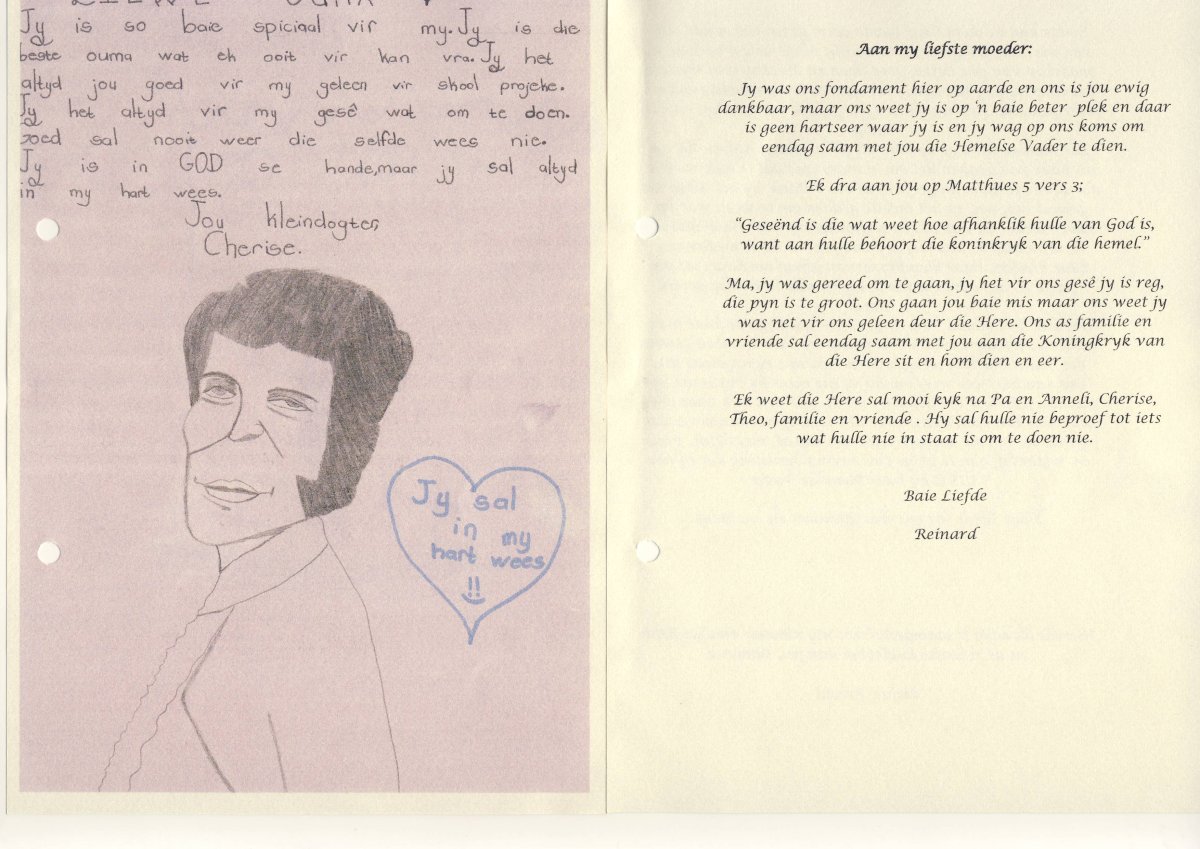 LIEWE OUMA
Jy is so baie spiciaal vir my. Jy is die
beste ouma wat ek ooit vir kan vra. Jy het
altyd jou goed vir my geleen vir skool projeke.
Jy het altyd vir my gesê wat om te doen.
Goed sal nooit weer die selfde wees nie.
Jy is in GOD se hande, maar jy sal altyd
in my hart wees.
Jou kleindogter,
Cherise.
Jy sal
in my
hart wees
!!
Aan my liefste moeder:
Jy was ons fondament hier op aarde en ons is jou ewig
dankbaar, maar ons weet jy is op 'n baie beter plek en daar
is geen hartseer waar jy is en jy wag op ons koms om
eendag saam met jou die Hemelse Vader te dien.
Ek dra aan jou op Matthues 5 vers 3;
“Geseënd is die wat weet hoe afhanklik hulle van God is,
want aan hulle behoort die koninkryk van die hemel.”
Ma, jy was gereed om te gaan, jy het vir ons gesê jy is reg,
die pyn is te groot. Ons gaan jou baie mis maar ons weet jy
was net vir ons geleen deur die Here. Ons as familie en
vriende sal eendag saam met jou aan die Koningkryk van
die Here sit en hom dien en eer.
Ek weet die Here sal mooi kyk na Pa en Anneli, Cherise,
Theo, familie en vriende . Hy sal hulle nie beproef tot iets
wat hulle nie in staat is om te doen nie.
Baie Liefde
Reinard